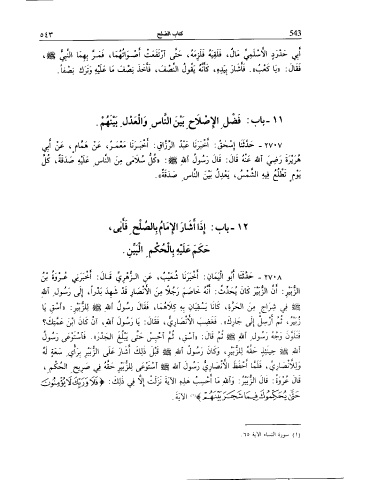 543 كتاب الصلح ٥٤٣
أبي حدرد الأسلمي مال، فلقيه فلزمه، حتى ارتفعت أصواتهما، فمر بهما النبي ﷺ،
فقال: «يا كعب». فأشار بيده، كأنه يقول النصف، فأخذ نصف ما عليه وترك نصفاً.
١١ - باب: فضل الإصلاح بين الناس والعدل بينهم.
٢٧٠٧ - حدثنا إسحق: أخبرنا عبد الرزاق: أخبرنا معمر، عن همام، عن أبي
هريرة رضي الله عنه قال: قال رسول الله ﷺ: «كل سلامى من الناس عليه صدقة، كل
يوم تطلع فيه الشمس، يعدل بين الناس صدقة».
١٢ - باب: إذا أشار الإمام بالصلح فأبى،
حكم عليه بالحكم البين.
٢٧٠٨ - حدثنا أبو اليمان: أخبرنا شعيب، عن الزهري قال: أخبرني عروة بن
الزبير: أن الزبير كان يحدث: أنه خاصم رجلاً من الأنصار قد شهد بدراً، إلى رسول الله
ﷺ في شراج من الحرة، كانا يسقيان به كلاهما، فقال رسول الله ﷺ للزبير: «اسق يا
زبير، ثم أرسل إلى جارك». فغضب الأنصاري، فقال: يا رسول الله، آن كان ابن عمتك؟
فتلون وجه رسول الله ﷺ ثم قال: «اسق، ثم احبس حتى يبلغ الجدر». فاستوعى رسول
الله ﷺ حينئذ حقه للزبير، وكان رسول الله ﷺ قبل ذلك أشار على الزبير برأي سعة له
وللأنصاري، فلما أحفظ الأنصاري رسول الله ﷺ استوعى للزبير حقه في صريح الحكم.
قال عروة: قال الزبير: والله ما أحسب هذه الآية نزلت إلا في ذلك: ﴿فلا وربك لا يؤمنون
حتى يحكموك فيما شجر بينهم﴾(١) الآية.
(١) سورة النساء الآية ٦٥.